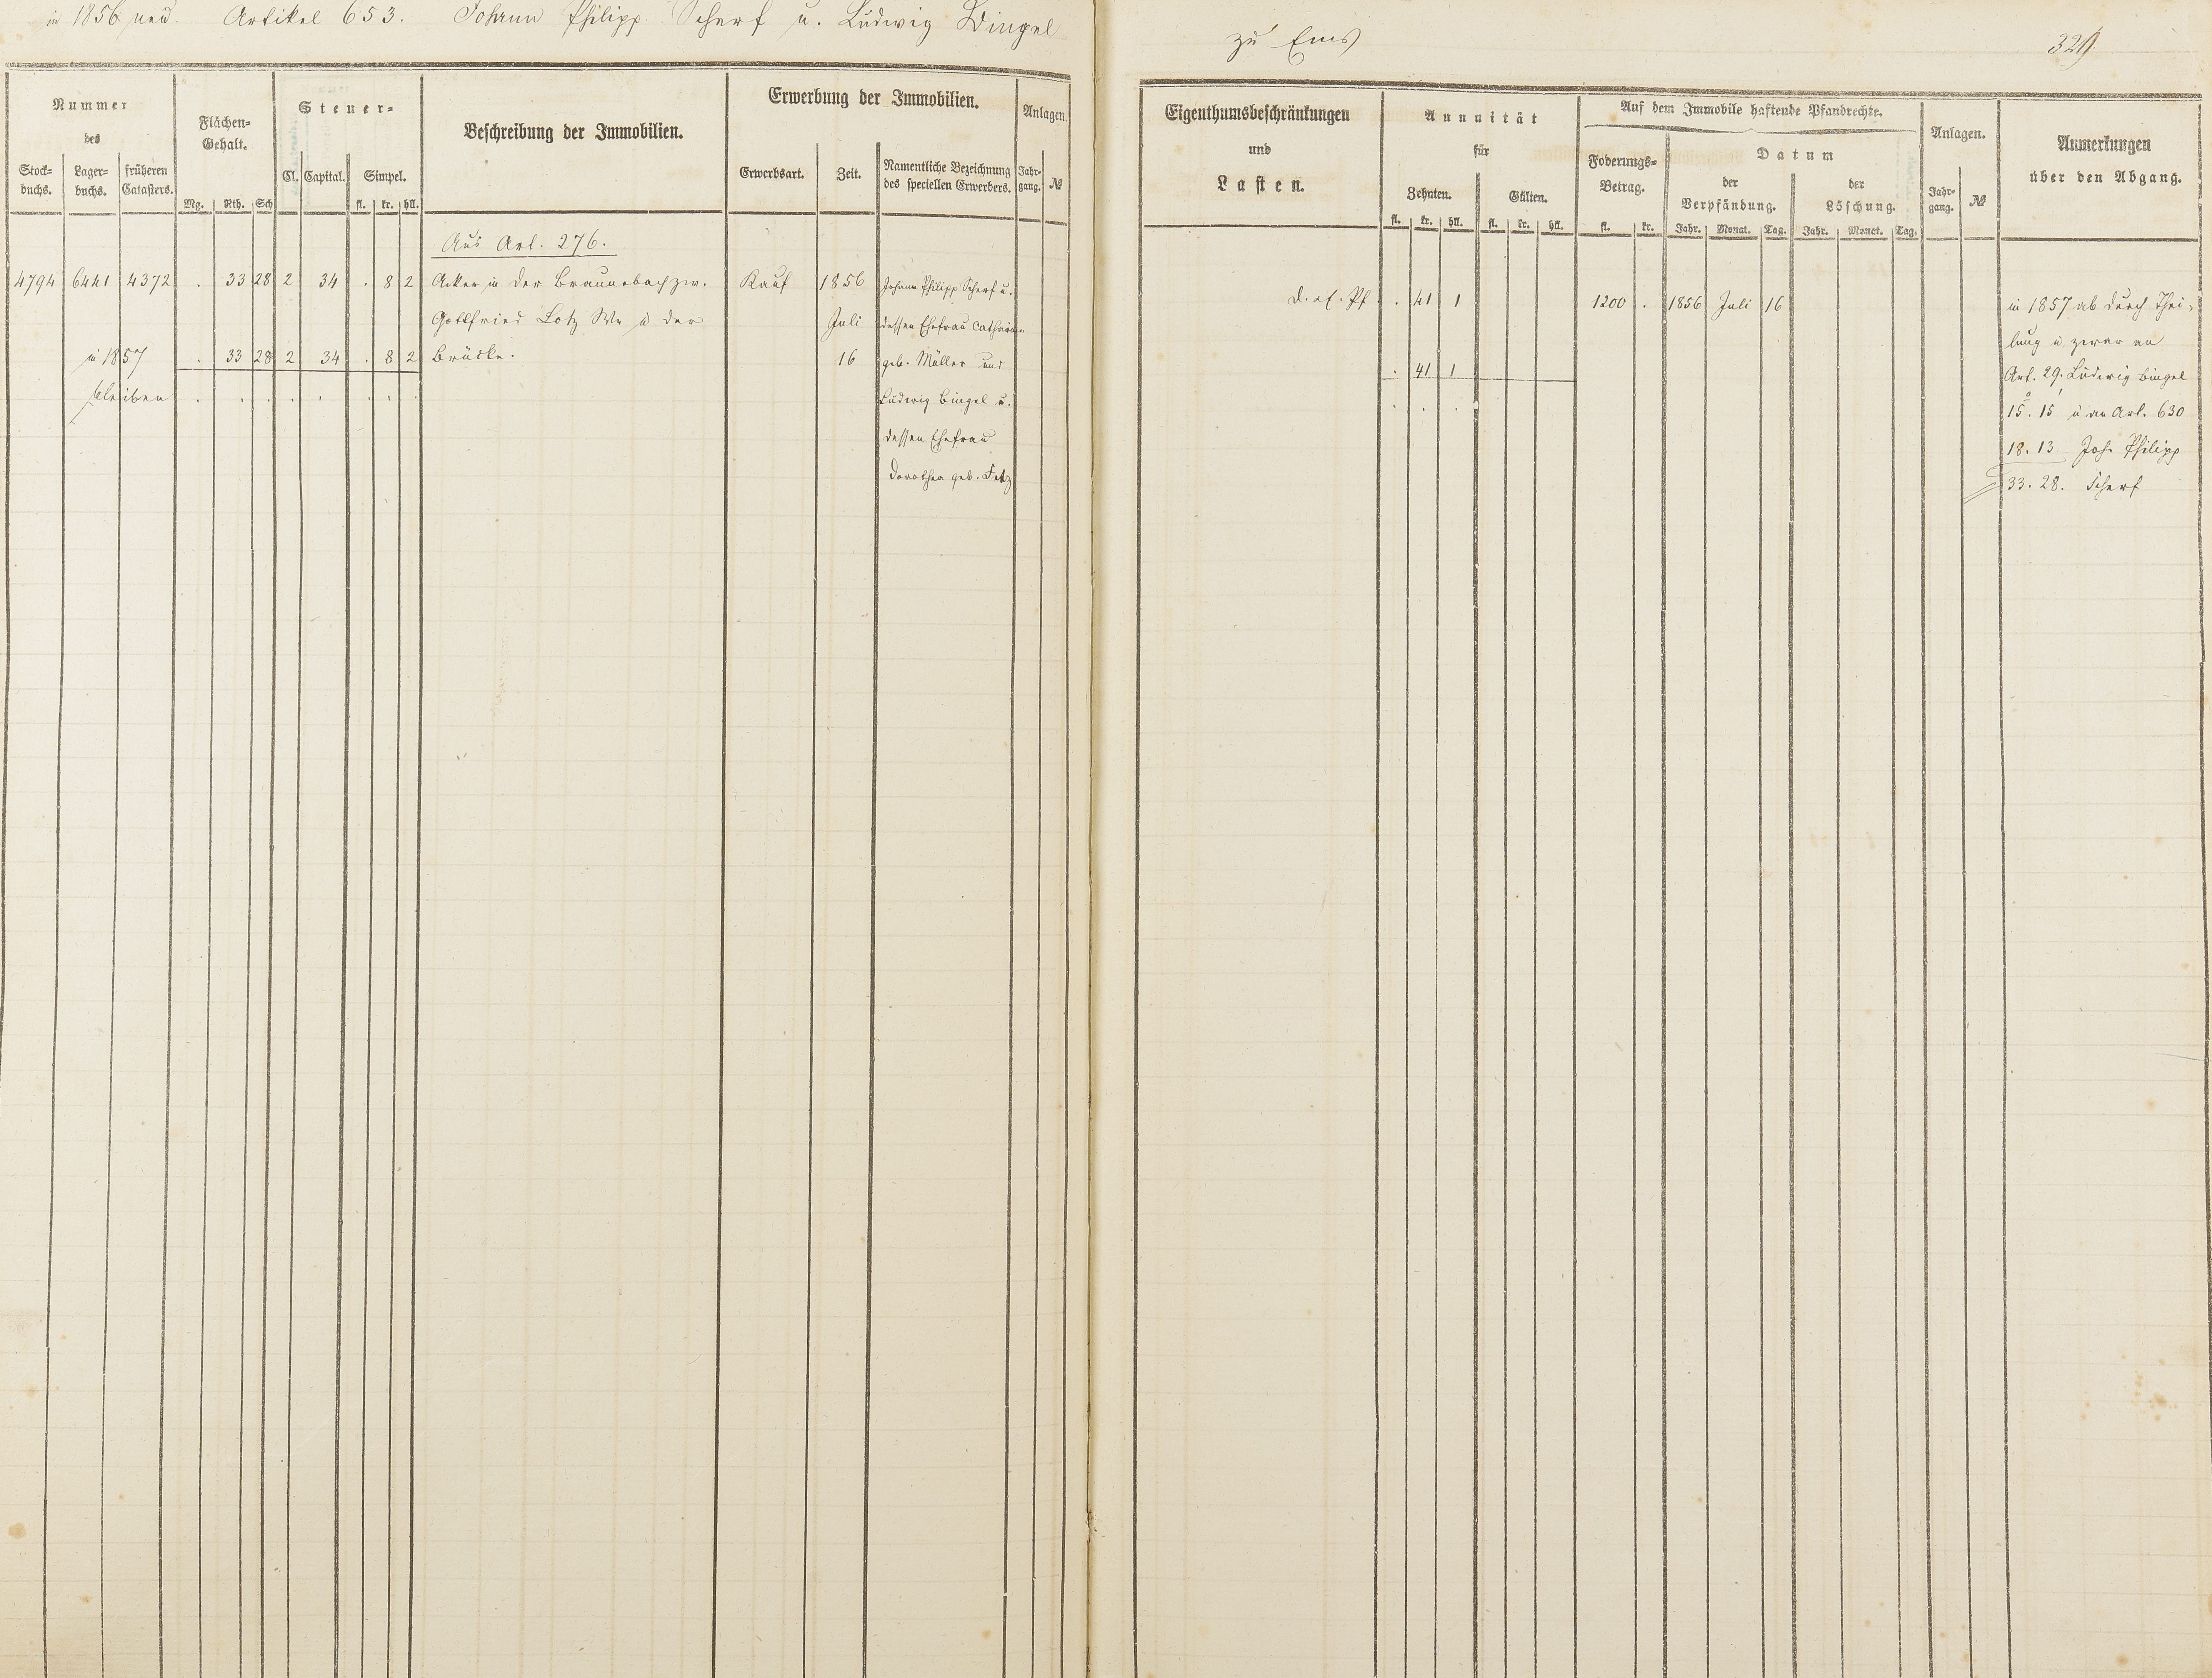 in 1856 neu. Artikel 653. Johann Philipp Scherf u. Ludwig Bingel
zu Ems 329
Nummer
des
Stock-
buchs.
Lager-
buchs.
früheren
Catasters.
Flächen-
Gehalt.
Mg. Rth. Sch
Steuer-
Cl. Capital. Simpel.
fl. kr. hll.
Beschreibung der Immobilien.
Erwerbung der Immobilien.
Erwerbsart. Zeit.
Namentliche Bezeichnung
des speciellen Erwerbers.
Anlagen.
Jahr-
gang. №
Eigenthumsbeschränkungen
und
Lasten.
Annuität
für
Zehnten. Gülten.
fl. kr. hll. fl. kr. hll.
Auf dem Immobile haftende Pfandrechte.
Foderungs-
Betrag.
fl. kr.
Datum
der
Verpfändung.
Jahr. Monat. Tag.
der
Löschung.
Jahr. Monat. Tag.
Anlagen.
Jahr-
gang. №
Anmerkungen
über den Abgang.
Aus Art. 276.
4794 6441 4372 . 33 28 2 34 . 8 2
Acker in der Braunebach zw.
Gottfried Lotz Wr u der
Brücke.
Kauf
1856
Juli
16
Johann Philipp Scherf u.
dessen Ehefrau Catharine
geb. Müller und
Ludwig Bingel u.
dessen Ehefrau
Dorothea geb.
in 1857 . 33 28 2 34 . 8 2
bleiben . . . . . . . .
. 41 1
1200 . 1856 Juli 16
. 41 1
. . .
in 1857 ab durch Thei-
lung u zwar an
Art. 29. Ludwig Bingel
15. 15 u an Art. 630
18. 13 Joh. Philipp
33. 28. Scherf